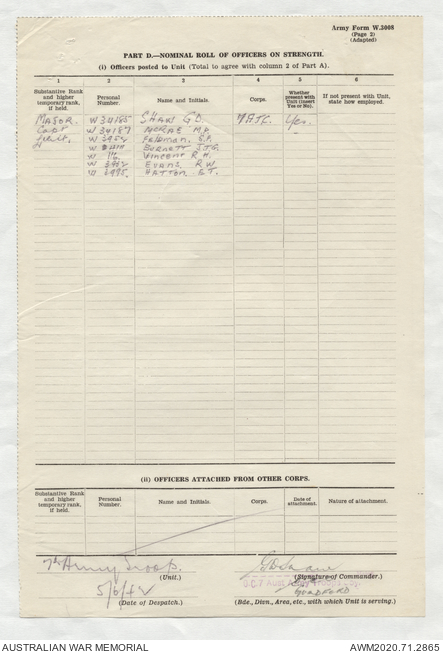 Army Form W.3008
(Page 2)
(Adapted)
PART D.—NOMINAL ROLL OF OFFICERS ON STRENGTH.
(i) Officers posted to Unit (Total to agree with column 2 of Part A).
1 2 3 4 5 6
Substantive Rank and higher temporary rank, if held. Personal Number. Name and Initials. Corps. Whether present with Unit (insert Yes or No). If not present with Unit, state how employed.
MAJOR. W34185 SHAW G.D. Yes.
Capt W34187 MCRAE
Lieut. FELDMAN.
" W BURNETT J.T.G.
W 116 VINCENT R.H.
W EVANS R.W
W 3995 HATTON E.T.
(ii) OFFICERS ATTACHED FROM OTHER CORPS.
Substantive Rank and higher temporary rank, if held. Personal Number. Name and Initials. Corps. Date of attachment. Nature of attachment.
7th Army Troop.
(Unit.) (Signature of Commander.)
5/6/42 GUILDFORD
(Date of Despatch.) (Bde., Divn., Area, etc., with which Unit is serving.)
AUSTRALIAN WAR MEMORIAL AWM2020.71.2865